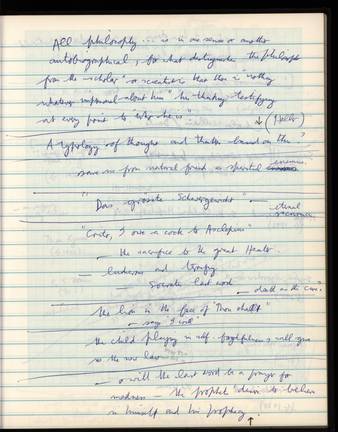 All philosophy ... is in one sense or another
autobiographical, for what distinguishes the philosoph
from the scholar or scientist that there is "nothing
whatever impersonal about him" his thinking testifying
at every point to who he is"
(Heller)
A typology of thought and thinkers based on this?
save us from natural friend a spiritual enemies.
"Das grösste Schwergewicht" — eternal
recurrence
"Crito, I owe a cock to Asclepius"
— the sacrifice to the great Healer.
— ludicrous and
— Socrates last word
— death as the cure?
the lion in the face of "Thou shalt"
— say "I will"
the child playing in self-forgetfulness will give
us the new law
— or will the last word be a prayer for
madness — the prophet's desire to believe
in himself and his prophecy?